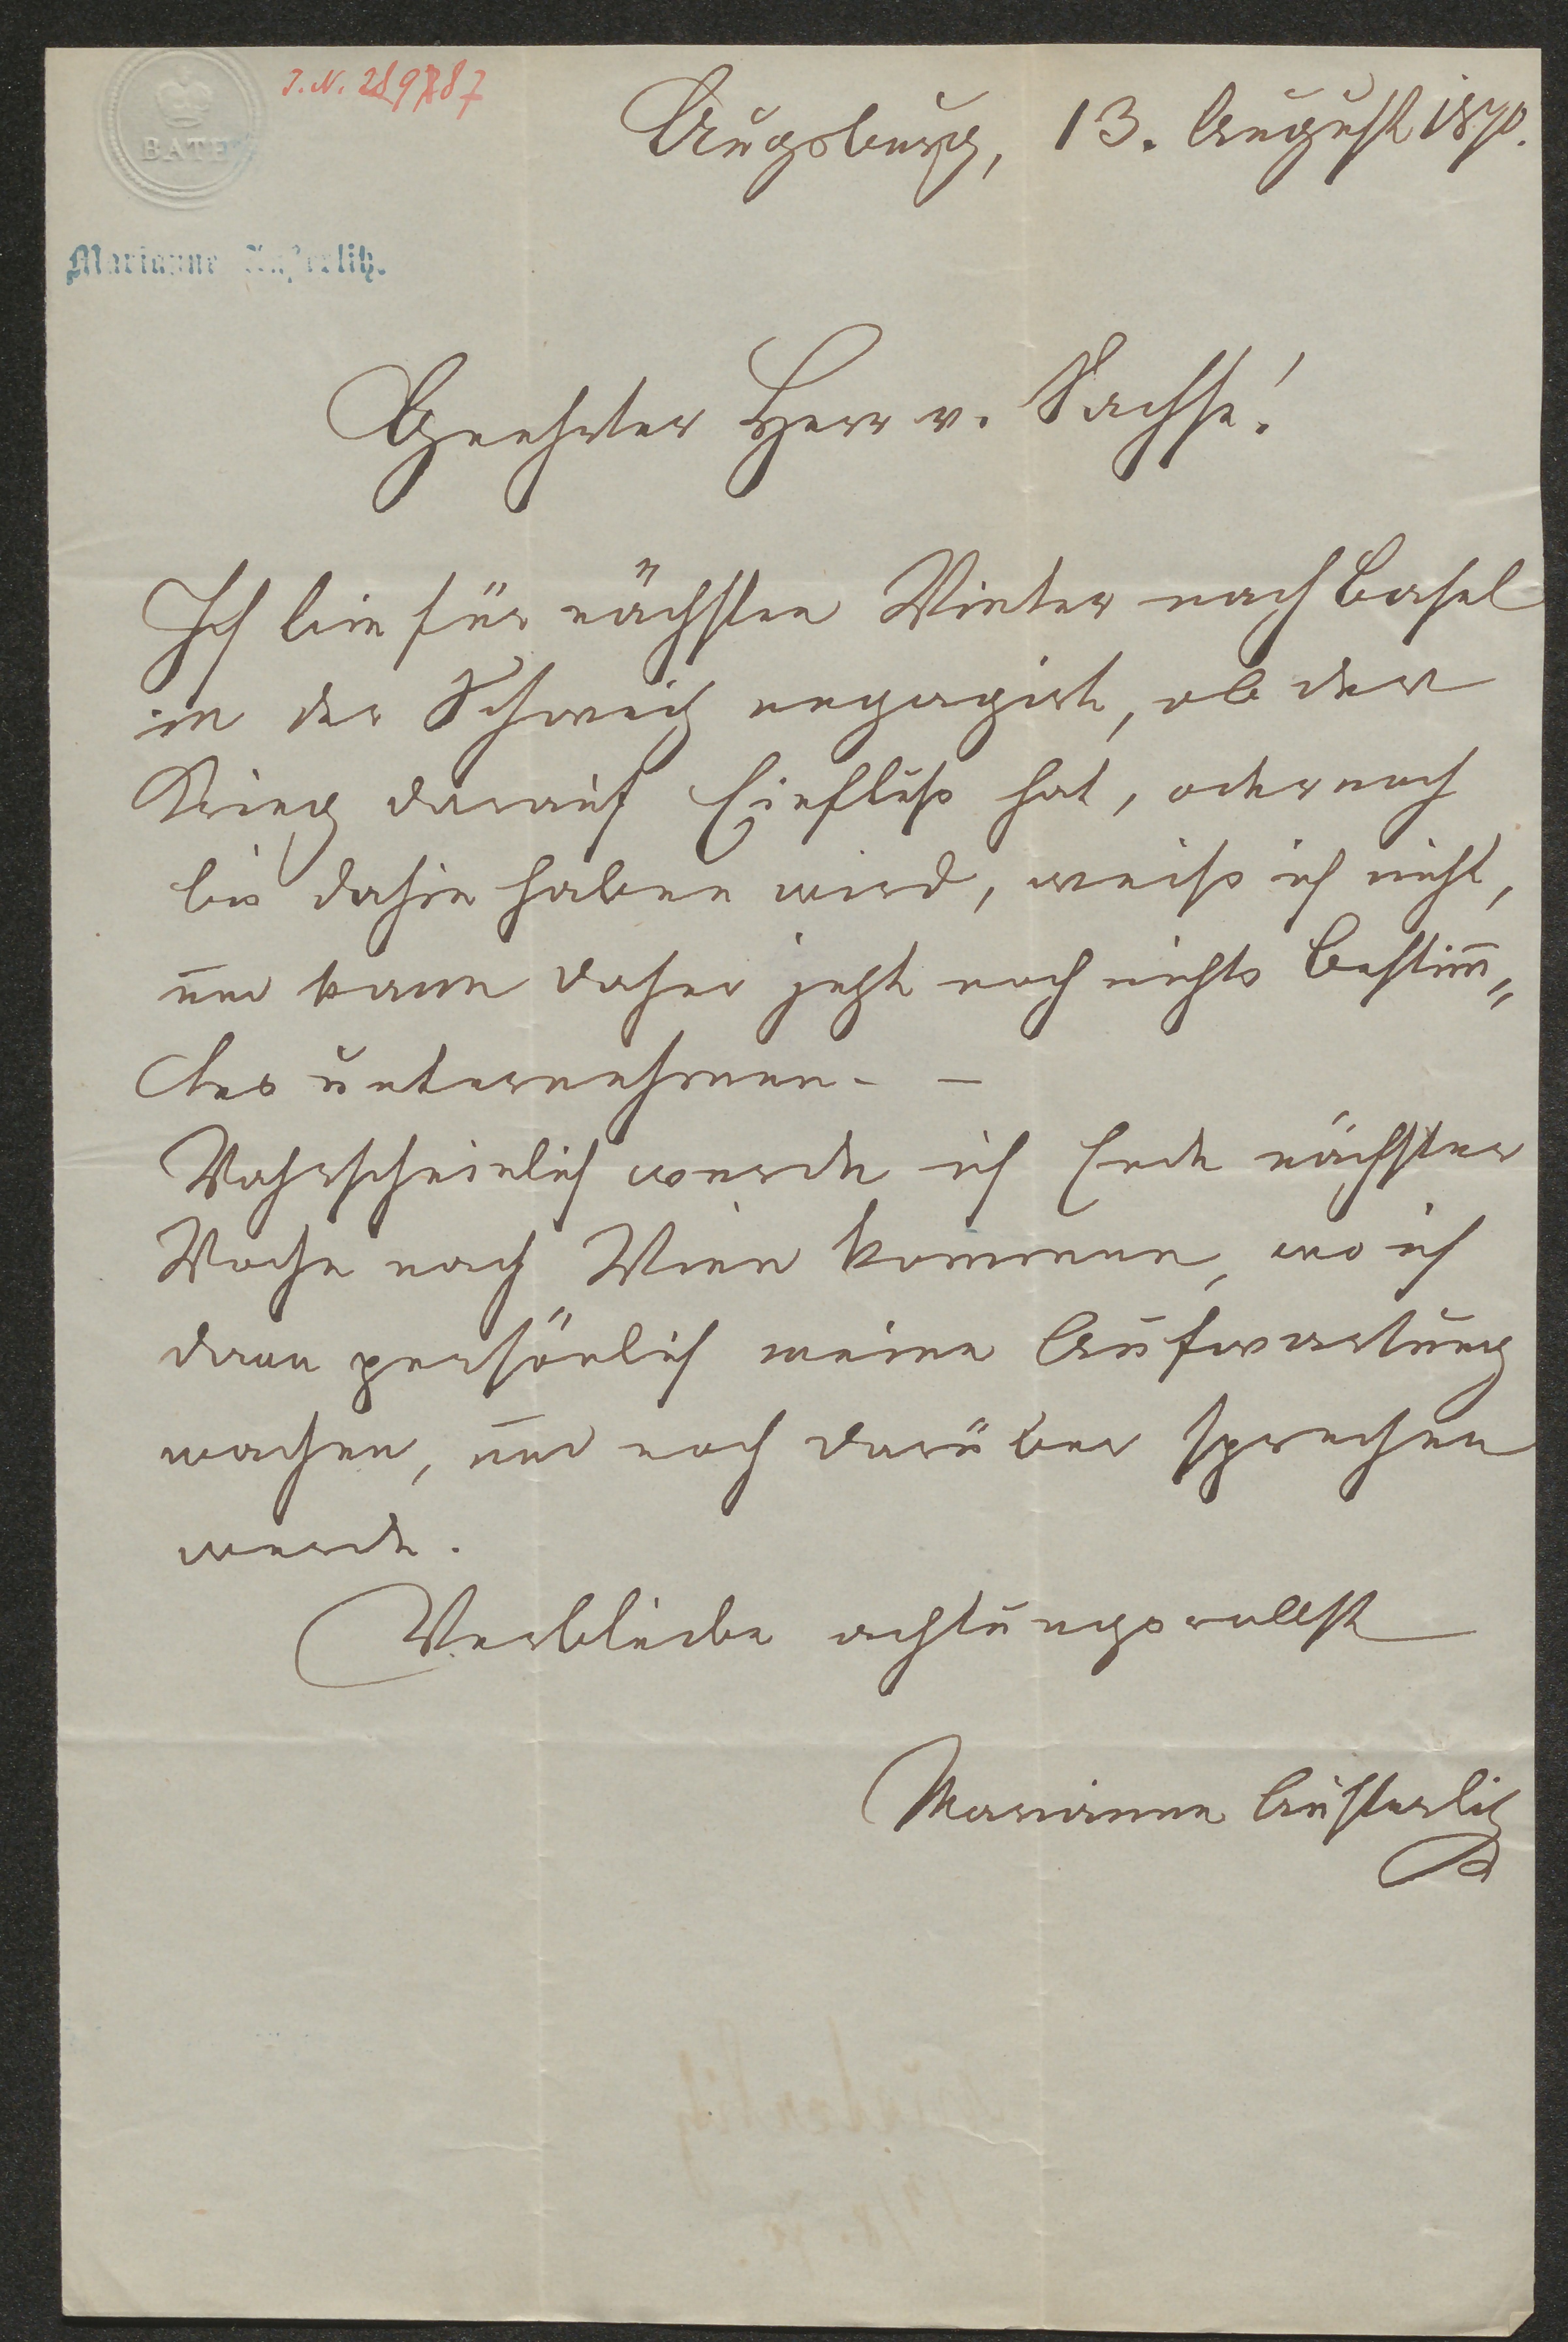 BATH
J.N. 289787
Augsburg, 13. August 1870.
Marianne Austerlitz.
Geehrter Herr v. Sachse!
Ich bin für nächsten Winter nach Basel
in der Schweiz engagirt, ob der
Krieg darauf Einfluß hat, oder noch
bis dahin haben wird, weiß ich nicht,
und kann daher jetzt noch nichts Bestim̅„
tes unternehmen. –
Wahrscheinlich werde ich Ende nächster
Woche nach Wien kommen, wo ich
dann persönlich meine Aufwartung
machen, und noch darüber sprechen
werde.
Verbleibe achtungsvollst
Marianne Austerlitz